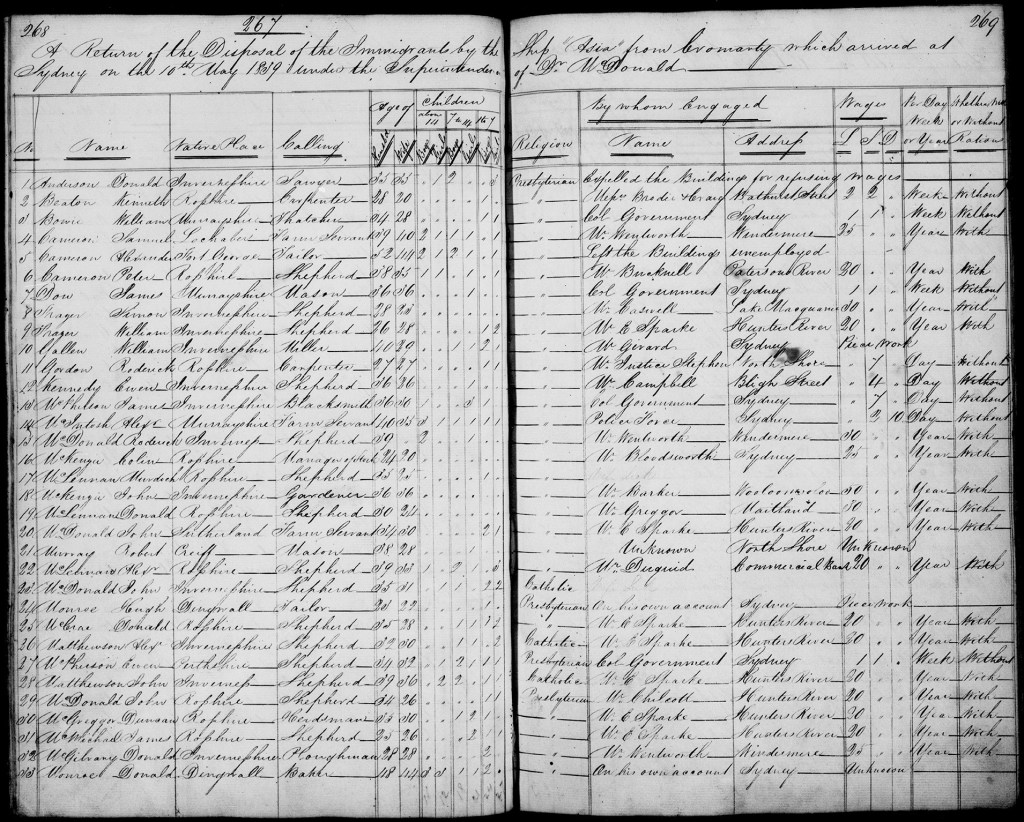 268
267
269
A Return of the Disposal of the Immigrants by the Ship "Asia" from Cromarty which arrived at
Sydney on the 10th May 1839 under the Superintendence of Dr McDonald
No Name Native Place Calling Age of Children Religion By whom Engaged Wages Pr Day Week or Year Whether With or Without Ration
above 14 7 to 14 1 to 7 Name Address £ S D
1 Anderson Donald Invernesshire Sawyer 35 35 Presbyterian Expelled the Building for refusing Wages
2 Beaton Kenneth Rosshire Carpenter 28 20 " Messrs Brodie & Craig Bathurst Street 2 2 " Week Without
3 Bowie William Murrayshire Thatcher 34 28 " Col Government Sydney 1 1 " Week Without
4 Cameron Samuel Lochaber Farm Servant 39 40 " Mr Wentworth Windermere 25 " " Year With
5 Cameron Alexander Fort George Tailor 52 44 " Left the Buildings unemployed
6 Cameron Peter Rosshire Shepherd 38 35 " Mr Bucknell Patersons River 20 " " Year With
7 Dow James Murrayshire Mason 36 36 " Col Government Sydney 1 1 " Week Without
8 Frazer Simon Invernesshire Shepherd 28 25 " Mr Caswell Lake Macquarie 30 " " Year With
9 Frazer William Invernesshire Shepherd 26 28 " Mr E Sparke Hunters River 20 " " Year With
10 Gallen William Invernesshire Miller 40 29 " Mr Girard Sydney Piece Work
11 Gordon Roderick Rosshire Carpenter 27 27 " Mr Justice Stephen North Shore " 7 " Day Without
12 Kennedy Ewen Invernesshire Shepherd 36 36 " Mr Campbell Bligh Street " 4 " Day Without
13 McPherson James Invernesshire Blacksmith 36 30 " Col Government Sydney " 7 " Day Without
14 McIntosh Alexr Murrayshire Farm Servant 40 35 " Police Force Sydney " 2 10 Day Without
15 McDonald Roderick Inverness Shepherd 39 " Mr Wentworth Windermere 30 " " Year With
16 McKenzie Colin Rosshire Manager of Stock 24 20 " Mr Bloodsworth Sydney 25 " " Year With
17 McLennan Murdich Rosshire Shepherd 35 25 "
18 McKenzie John Invernesshire Gardener 36 36 " Mr Barker Wooloomooloo 30 " " Year With
19 McLennan Donald Rosshire Shepherd 30 24 " Mr Greggor Maitland 30 " " Year With
20 McDonald John Sutherland Farm Servant 34 30 " Mr E Sparke Hunters River 20 " " Year With
21 Murray Robert Crieff Mason 38 28 " Unknown North Shore Unknown
22 McLennan Alexr Rosshire Shepherd 39 33 " Mr Duguid Commercial Bank 20 " " Year With
23 McDonald John Invernesshire Shepherd 35 31 Catholic
24 Monroe Hugh Dingwall Tailor 23 22 Presbyterian On his own account Sydney Piece Work
25 McCrae Donald Rosshire Shepherd 35 28 " Mr E Sparke Hunters River 20 " " Year With
26 Matthewson Alexr Invernesshire Shepherd 32 30 Catholic Mr E Sparke Hunters River 20 " " Year With
27 McPherson Ewen Perthshire Shepherd 34 32 Presbyterian Col Government Sydney 1 1 " Week Without
28 Matthewson John Inverness Shepherd 39 36 Catholic Mr E Sparke Hunters River 20 " " Year With
29 McDonald John Rosshire Shepherd 34 26 Presbyterian Mr Chilcott Hunters River 20 " " Year With
30 McGreggor Duncan Rosshire Herdsman 35 30 " Mr E Sparke Hunters River 20 " " Year With
31 James Rosshire Shepherd 25 26 " Mr E Sparke Hunters River 20 " " Year With
32 McGilvray Donald Invernesshire Ploughman 28 28 " Mr Wentworth Windermere 25 " " Year With
33 Monroe Donald Dingwall Baker 48 44 " On his own account Sydney Unknown